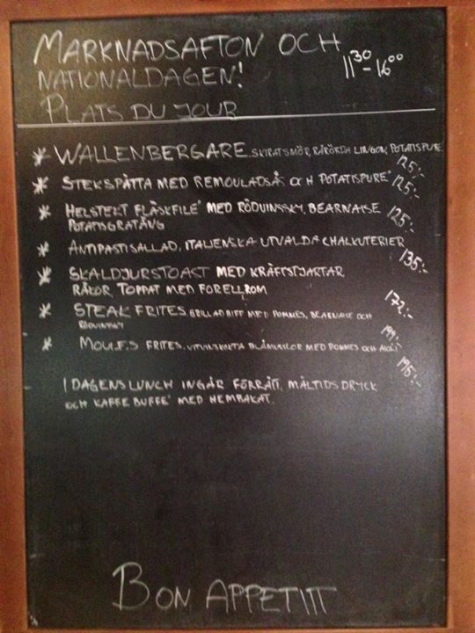 MARKNADSAFTON OCH
NATIONALDAGEN! 11 30 - 16 00
PLATS DU JOUR
* WALLENBERGARE SKIRAT SMÖR, RÅRÖRDA LINGON, POTATISPURE 125:-
* STEKSPÄTTA MED REMOULADSÅS OCH POTATISPURÉ 125:-
* HELSTEKT FLÄSKFILÉ MED RÖDVINSSKY, BEARNAISE 125:-
POTATISGRATÄNG
* ANTIPASTISALLAD, ITALIENSKA UTVALDA CHARKUTERIER 135:-
* SKALDJURSTOAST MED KRÄFTSTJÄRTAR
RÄKOR TOPPAT MED FORELLROM 172:-
* STEAK FRITES GRILLAD BIFF MED POMMES, BEARNAISE OCH
RÖDVINSSKY 195:-
* MOULES FRITES, BLÅMUSSLOR MED POMMES OCH AIOLI 195:-
I DAGENS LUNCH INGÅR FÖRRÄTT, MÅLTIDSDRYCK
OCH KAFFE BUFFÉ MED HEMBAKAT.
BON APPETITT